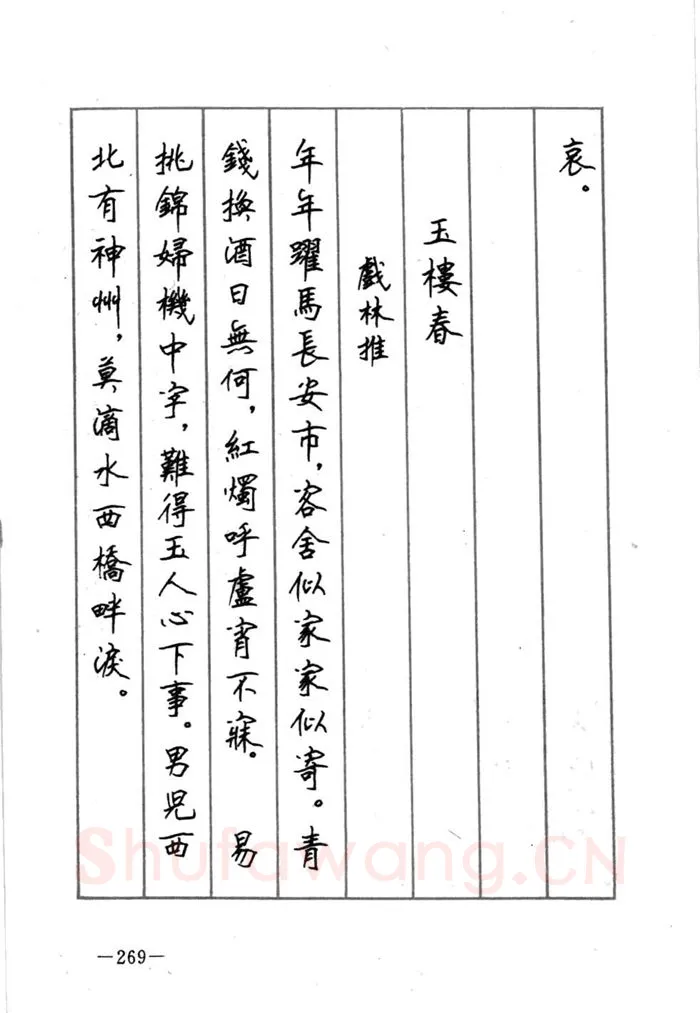 哀。
玉樓春
戲林推
年年躍馬長安市，客舍似家家似寄。青
錢換酒日無何，紅燭呼盧宵不寐。　易
挑錦婦機中字，難得玉人心下事。男兒西
北有神州，莫滴水西橋畔淚。
Shufawang.CN
—269—